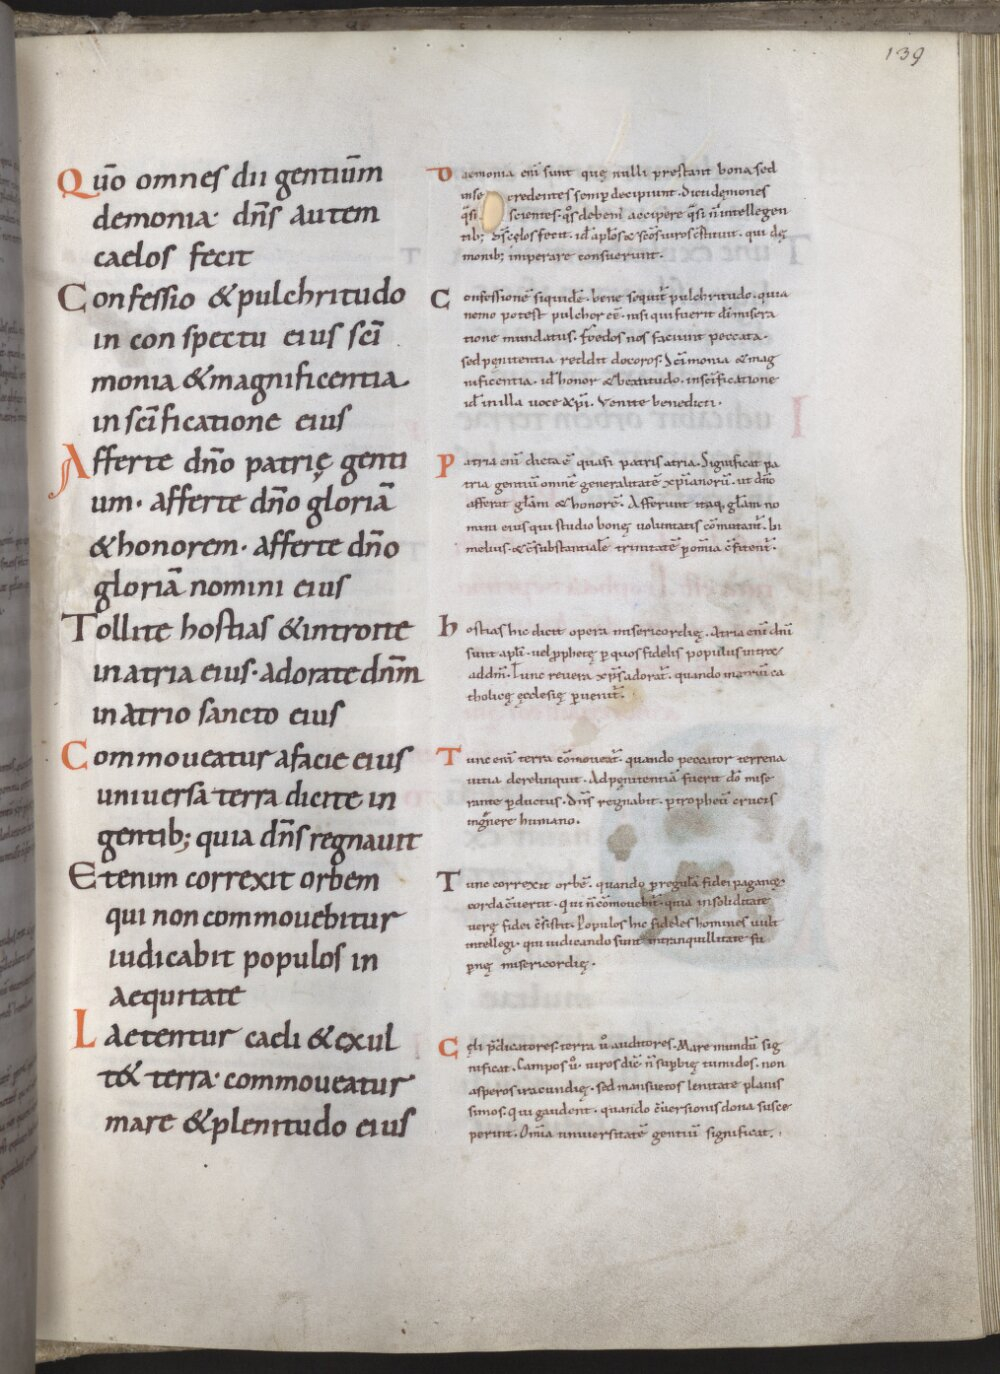 139
Quō omnes dii gentiūm
demonia· dn̄s autem
caelos fecit
Confessio &pulchritudo
in conspectu eius sc̄i
monia &magnificentia
in sc̄ificatione eius
Afferte dn̄o patrię genti
um· afferte dn̄o gloriā
&honorem· afferte dn̄o
gloriā nomini eius
Tollite hostias &introite
in atria eius· adorate dnm̄
in atrio sancto eius
Commoueatur afacie eius
uniuersa terra dicite in
gentib; quia dn̄s regnauit
Etenim correxit orbem
qui non commouebitur
iudicabit populos in
aequitate
Laetentur caeli &exul
t& terra· commoueatur
mare &plenitudo eius
Daemonia eni͂ sunt quę nulli prestant bona sed
inse credentes semp̲ decipiunt· Dicti demones
q̄si scientes· q̄s debent accipere q̄si n̄ intellegen
tib; Dn̄s cęlos fecit· id ap̄los & sc̄os uiros c̄stituit· qui dę
monib; imperare consuerunt·
Confessionē siquidē· bene sequit̄ pulchritudo· quia
nemo potest pulcher eē· nisi qui fuerit di͂ misera
tione mundatus· Foedos nos faciunt peccata·
sed pęnitentia reddit decoros· Sc̄imonia &mag
nificentia· id honor &beatitudo· in sc̄ificatione
id in illa uoce xp̄i· Venite benedicti·
Patria eni͂ dicta ē· quasi patris atria· Significat pa
tria gentiū omnē generalitatē xp̄ianorū· ut dn̄o
afferat gl̄am &honorē· Afferunt itaq; gl̄am no
mini eius qui studio bonę uoluntatis cō̄mutant̄· In
melius· &c̄substantialē trinitatē p̲ om̄ia c̄fitent̄·
hostias hic dicit opera misericordię· Atria eni͂ dn̄i
sunt apl̄i· uel p̲phetę p̲ quos fidelis populus introit̄
ad dn̄m· Tunc reuera xp̄s adorat̄· quando in atriū ca
tholicę ęcclesię p̲uenit̄·
Tunc eni͂ terra cō̄mouet̄· quando peccator terrena
uitia derelinquit· Ad pęnitentiā fuerit dn̄o mise
rante p̲ductus· Dn̄s regnabit· p̲ tropheū crucis
in gn̄ere humano·
Tunc correxit orbē· quando p̲ regulā fidei paganę
corda c̄uertit· Qui n̄ cō̄mouebit̄· quia in soliditate
uerę fidei c̄sistit· Populos hic fideles homines uult
intellegi· qui iudicando sunt in tranquillitate su
p̲nę misericordię·
Cęli p̄dicatores· terra ū auditores· Mare mundū sig
nificat· Campos ū· uiros dic̄· n̄ supbię tumidos· non
asperos iracundię· sed mansuetos lenitate planis
simos· qui gaudent· quando c̄uersionis dona susce
perint· Om̄ia uniuersitatē gentiū significat·